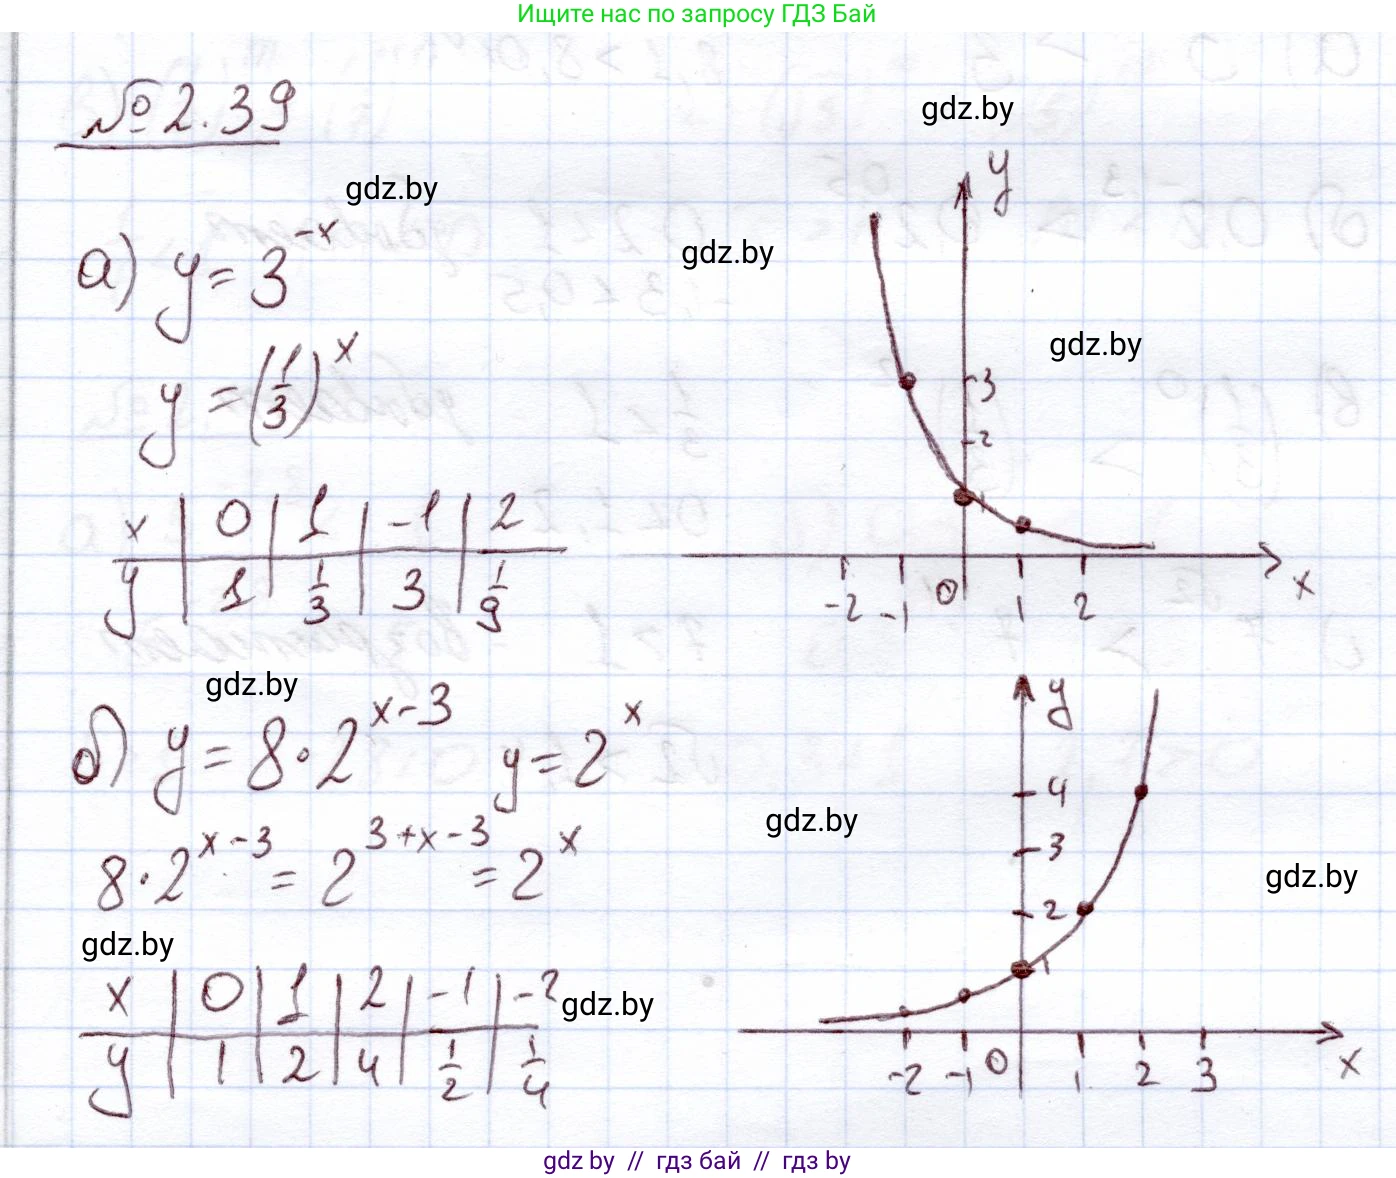 Ищите нас по запросу ГДЗ Бай
№ 2.39
gdz.by
gdz.by
gdz.by
gdz.by
а) y = 3^{-x}
y = (1/3)^x
x | 0 | 1 | -1 | 2
y | 1 | 1/3 | 3 | 1/9
y
3
2
1
-2 -1 0 1 2 x
gdz.by
б) y = 8 · 2^{x-3} y = 2^x
8 · 2^{x-3} = 2^{3+x-3} = 2^x
gdz.by
x | 0 | 1 | 2 | -1 | -2
y | 1 | 2 | 4 | 1/2 | 1/4
gdz.by
gdz.by
gdz.by
y
4
3
2
1
-2 -1 0 1 2 3 x
gdz by // гдз бай // гдз by